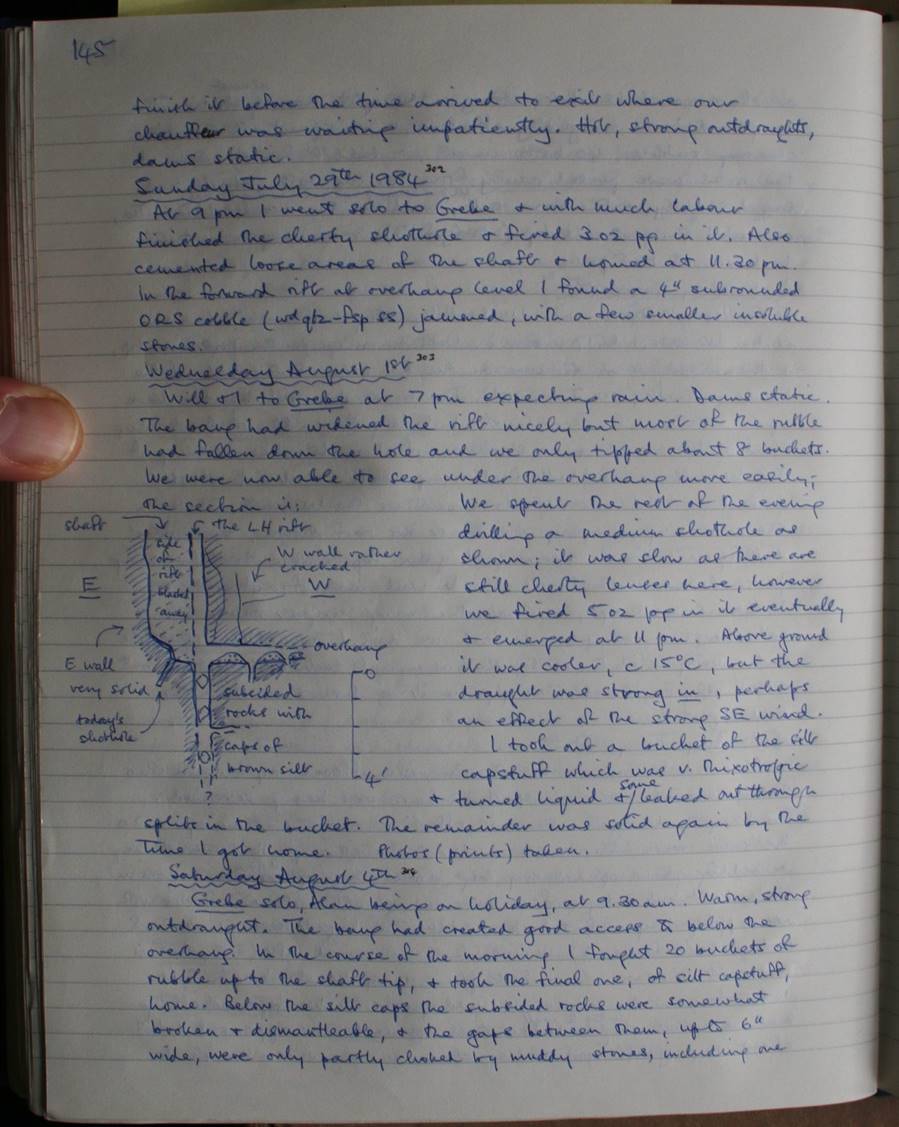 145
finish it before the time arrived to exit where our
chauffeur was waiting impatiently. Hot, strong outdraughts,
dams static.
Sunday July 29th 1984 302
At 9 pm I went solo to Grebe & with much labour
finished the cherty shothole & fired 3 oz pp in it. Also
cemented loose areas of the shaft & homed at 11.30 pm.
In the forward rift at overhang level I found a 4" subrounded
ORS cobble (wd qtz-fsp ss) jammed, with a few smaller insoluble
stones.
Wednesday August 1st 303
Will & I to Grebe at 7 pm expecting rain. Dams static.
The bang had widened the rift nicely but most of the rubble
had fallen down the hole and we only tipped about 8 buckets.
We were now able to see under the overhang more easily;
the section is:
shaft
the LH rift
side of rift blasted away
W wall rather cracked
E
W
overhang
E wall
very solid
today's
shothole
subsided
rocks with
caps of
brown silt
0
4'
?
We spent the rest of the evening
drilling a medium shothole as
shown; it was slow as there are
still cherty lenses here, however
we fired 5 oz pp in it eventually
& emerged at 11 pm. Above ground
it was cooler, c 15°C, but the
draught was strong in, perhaps
an effect of the strong SE wind.
I took out a bucket of the silt
capstuff which was v. thixotropic
& turned liquid & some leaked out through
splits in the bucket. The remainder was solid again by the
time I got home. Photos (prints) taken.
Saturday August 4th 304
Grebe solo, Alan being on holiday, at 9.30 am. Warm, strong
outdraught. The bang had created good access to below the
overhang. In the course of the morning I fought 20 buckets of
rubble up to the shaft tip, & took the final one, of silt capstuff,
home. Below the silt caps the subsided rocks were somewhat
broken & dismantleable, & the gaps between them, up to 6"
wide, were only partly choked by muddy stones, including one